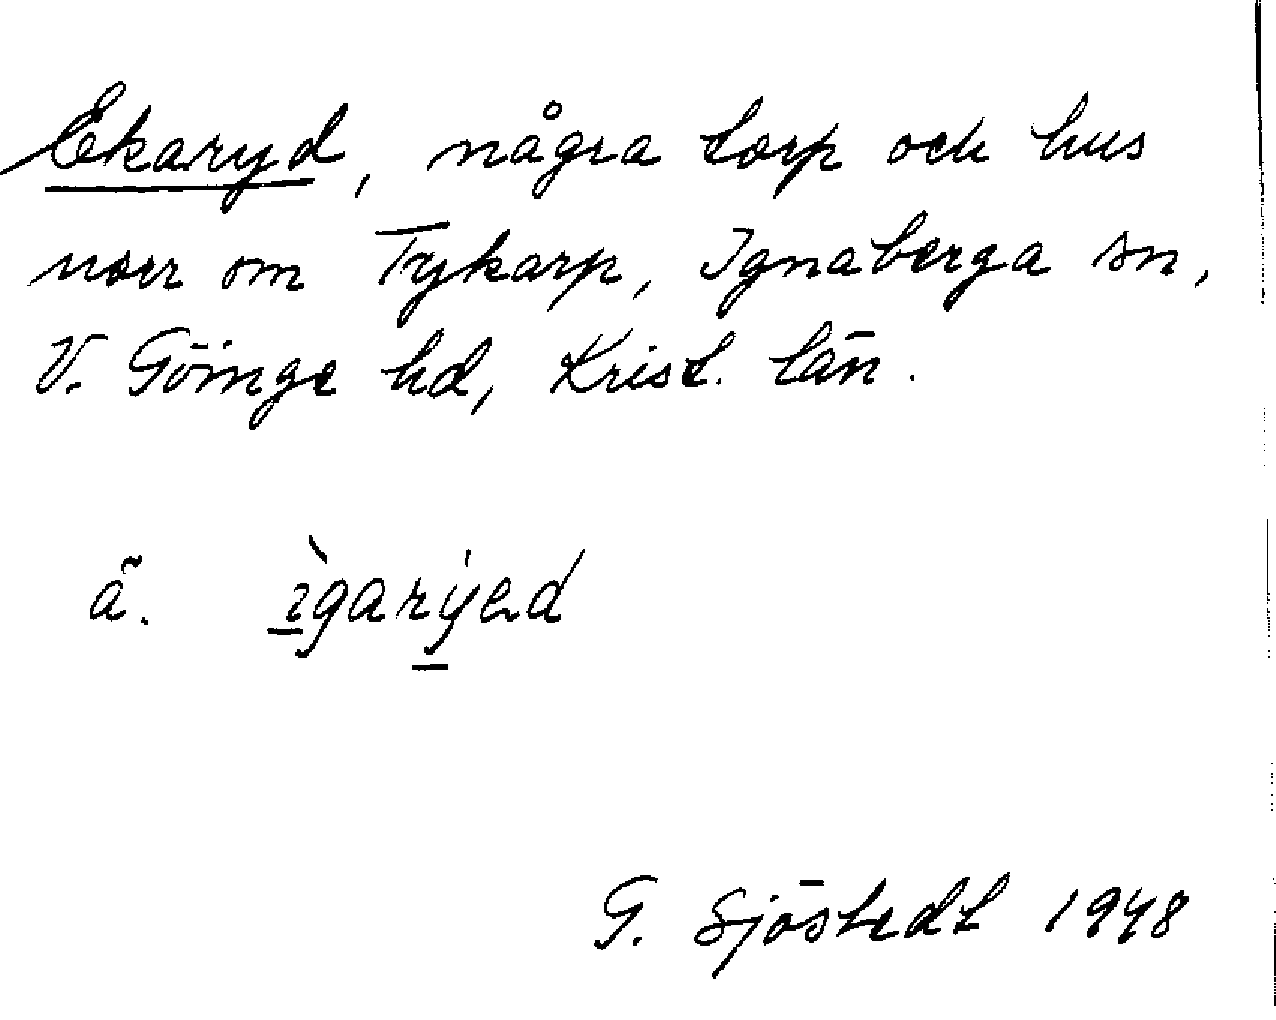 Ekaryd, några torp och hus
norr om Tykarp, Ignaberga sn,
V. Göinge hd, Krist. län.
ä. ìgarýed
G. Sjöstedt 1948